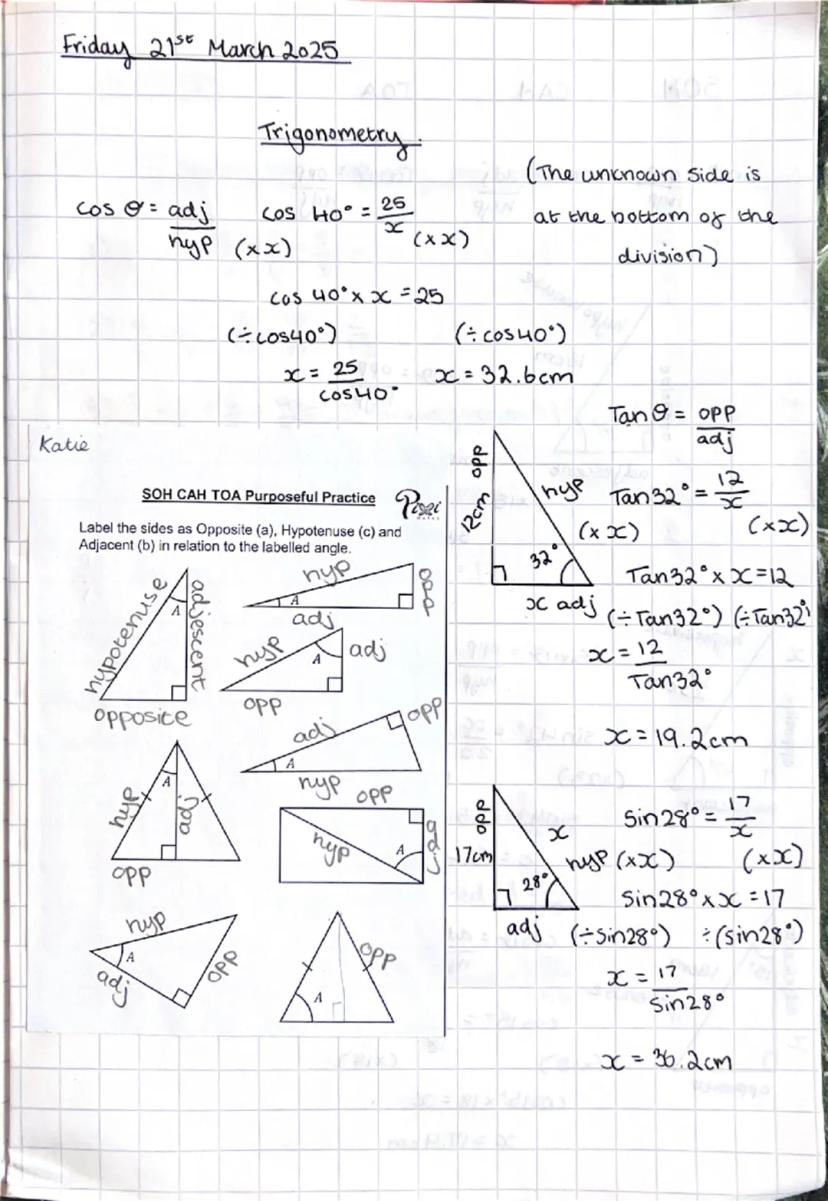 Friday 21st March 2025
Trigonometry.
cos θ = adj/hyp
cos 40° = 25/x
(× x) (× x)
cos 40° × x = 25
(÷cos40°) (÷cos40°)
x = 25/cos40° x = 32.6cm
(The unknown side is
at the bottom of the
division)
Katie
SOH CAH TOA Purposeful Practice
Label the sides as Opposite (a), Hypotenuse (c) and
Adjacent (b) in relation to the labelled angle.
hypotenuse
A
adjescent
opposite
hyp
A
opp
adj
hyp
A
adj
opp
adj
opp
A
hyp
hyp
A
adj
opp
opp
hyp
A
adj
hyp
A
adj
opp
opp
A
opp
12cm
hyp
32°
x adj
Tan θ = opp/adj
Tan32° = 12/x
(× x) (× x)
Tan32° × x = 12
(÷Tan32°) (÷Tan32°)
x = 12/Tan32°
x = 19.2cm
opp
17cm
x
hyp
28°
adj
Sin28° = 17/x
(× x) (× x)
Sin28° × x = 17
(÷Sin28°) ÷(Sin28°)
x = 17/Sin28°
x = 36.2cm